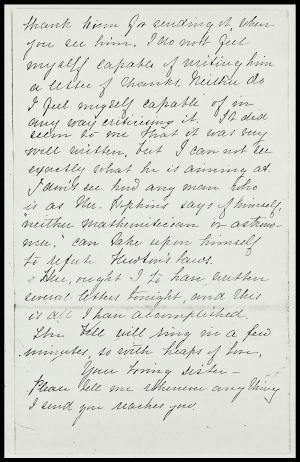 thank him for sending it, when
you see him. I do not feel
myself capable of writing him
a letter of thanks. Neither do
I feel myself capable of in
any way criticising it. It did
seem to me that it was very
well written, but I can not see
exactly what he is aiming at.
I don't see how any man who
is as Mr. Hopkins says of himself,
"neither mathematician or astrono-
mer," can take upon himself
to refute Newton's laws.
ought I to have written
several letters tonight, and this
is all I have accomplished.
The bell will ring in a few
minutes, so with heaps of love,
Your loving sister—
Please tell me whenever anything
I send you reaches you.